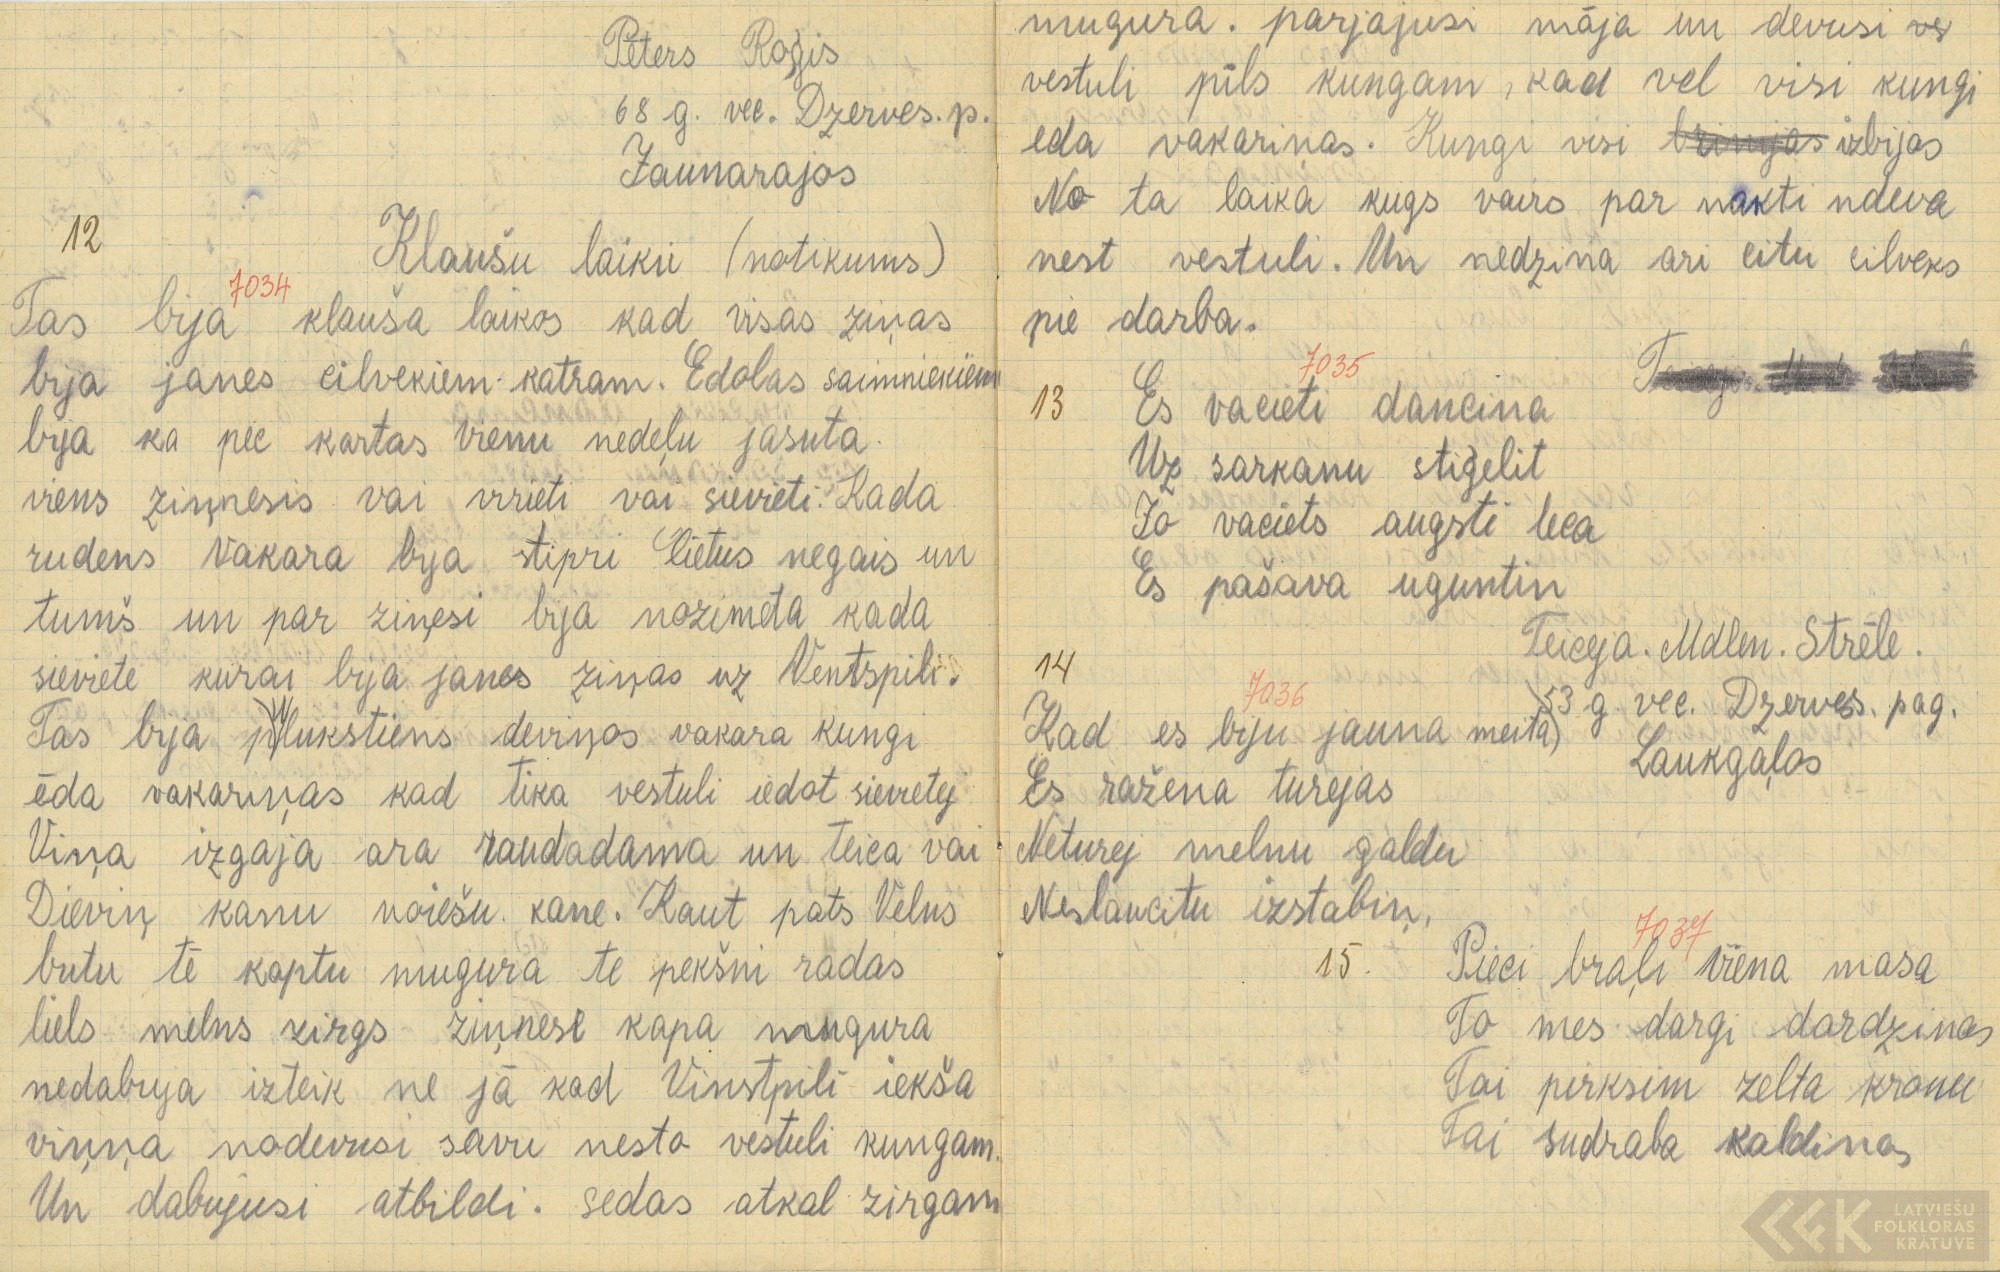 Peters Roģis
68 g. vec. Dzerves. p.
Jaunarajos
12
Klaušu laikii (notikums)
7034
Tas bija klauša laikos kad visas ziņas
bija janes cilvekiem katram. Edolas saimniekiem
bija ka pec kartas vienu nedeļu jasuta.
viens ziņnesis vai vrieti vai sievieti. Kada
rudens vakara bija stipri lietus negais un
tumš un par ziņesi bija nozimeta kada
sieviete kurai bija janes ziņas uz Ventspili.
Tas bija plukstiens deviņos vakara kungi
ēda vakariņas kad tika vestuli iedot sievietej
Viņa izgaja ara raudadama un teica vai
Dieviņ kanu noiešu kane. Kaut pats Velns
butu tē kaptu mugura te pekšni radas
liels melns zirgs ziņnese kapa mugura
nedabuja izteik ne jā kad Vinstpilī iekša
viņņa nodevusi savu nesto vestuli kungam.
Un dabujusi atbildi. sedas atkal zirgam
mugura. parjajusi māja un devusi
vestuli pils kungam, kad vel visi kungi
eda vakariņas. Kungi visi izbijas
No ta laika kugs vairs par nakti ndeva
nest vestuli. Un nedzina ari citu cilveks
pie darba.
7035
13
Es vacieti dancina
Uz sarkanu stiģelit
Jo vaciets augsti leca
Es pašava uguntin
Teiceja. Mdlen. Strēle.
53 g. vec. Dzerves. pag.
Laukgaļos
14
7036
Kad es biju jauna meita
Es ražena turejas
Neturej melnu galdu
Neslaucitu izstabiņ.
7037
15.
Pieci braļi viena masa
To mes dargi dardzinas
Tai pirksim zelta kronu
Tai sudraba kaldinas
LATVIEŠU
FOLKLORAS
KRĀTUVE